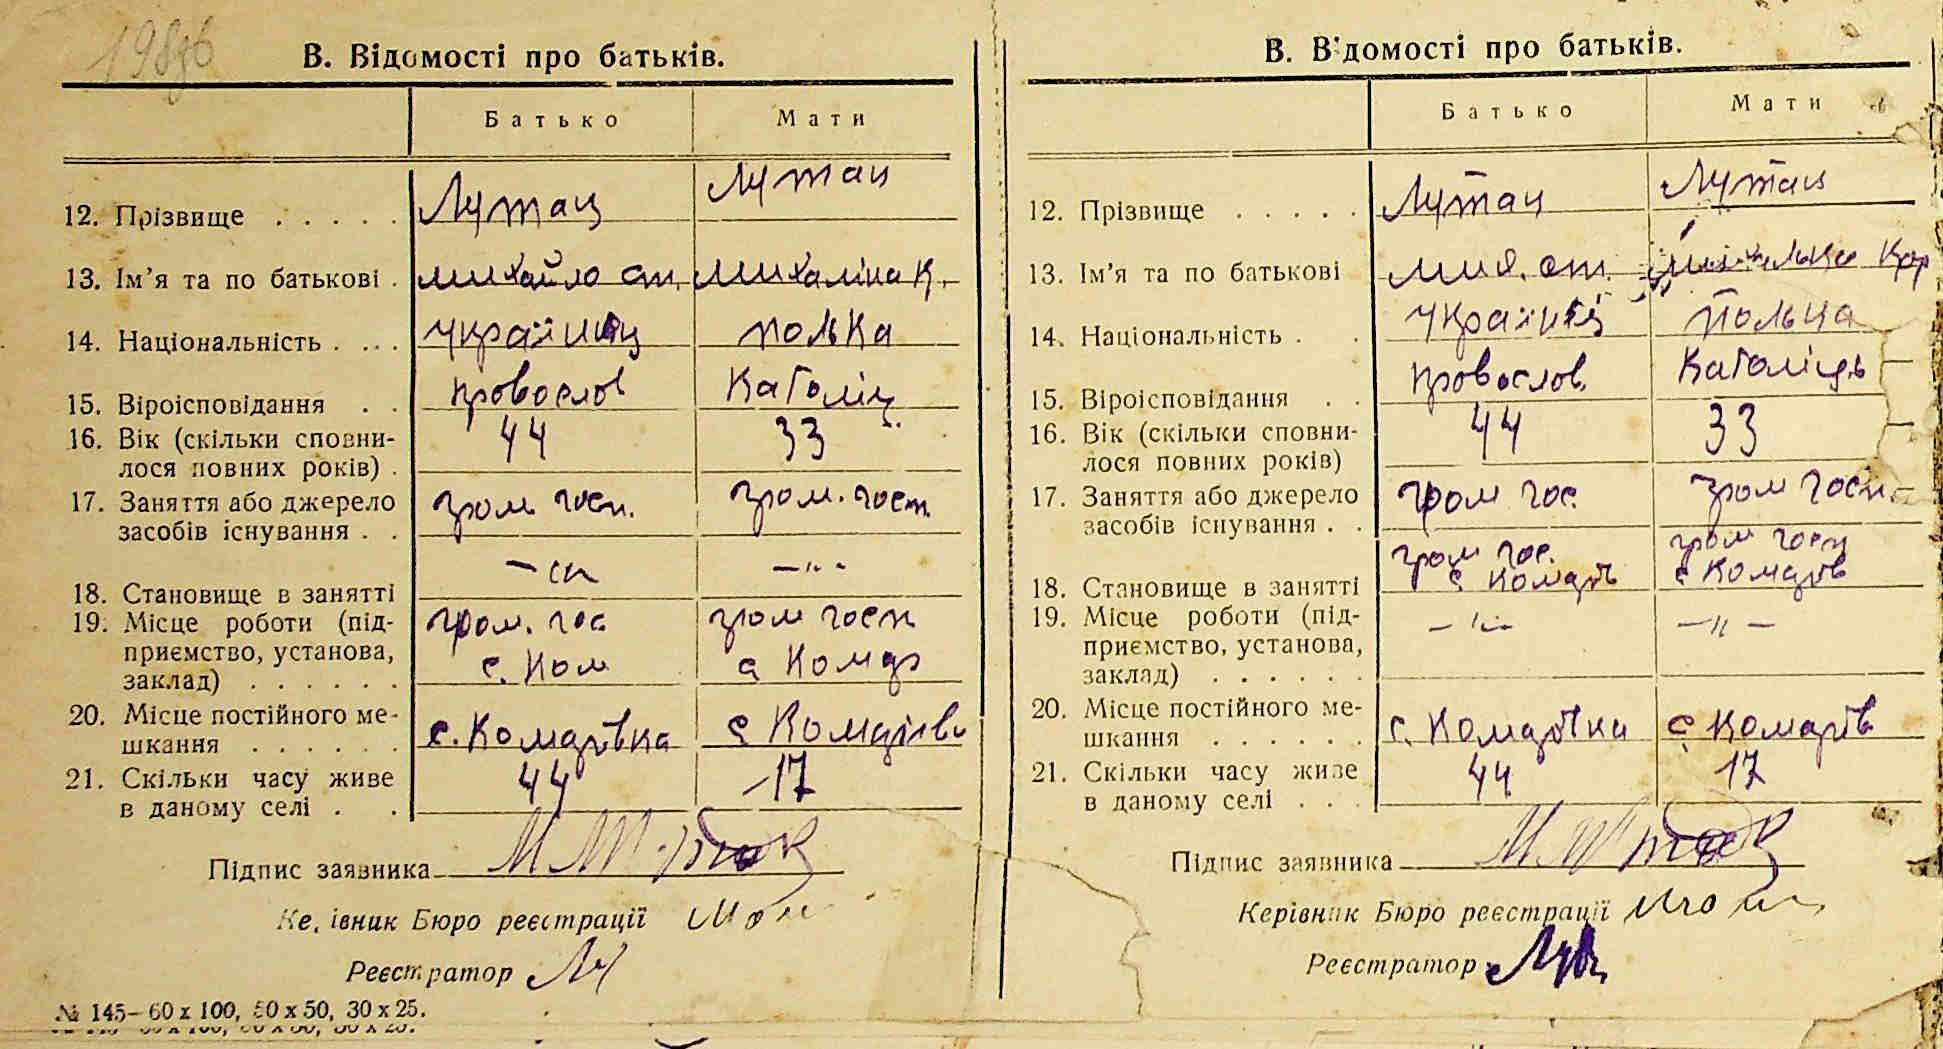 В. Відомості про батьків.
Батько Мати
12. Прізвище . . . . . Лутац Лутац
13. Ім'я та по батькові . михайло ст. михаліна К.
14. Національність . . . . українец полька
15. Віроісповідання . . провослов Католіц.
16. Вік (скільки сповни- 44 33
лося повних років) .
17. Заняття або джерело гром. госп. гром. госп.
засобів існування . .
18. Становище в занятті –"– –"–
19. Місце роботи (під- гром. гос. гром госп
приємство, установа, с. Ком с Комар
заклад) . . . . . .
20. Місце постійного ме- с. Комарівка с Комарівк
шкання . . . . . .
21. Скільки часу живе 44 17
в даному селі . .
Підпис заявника
Керівник Бюро реєстрації
Реєстратор
№ 145–60 x 100, 50 x 50, 30 x 25.
В. Відомості про батьків.
Батько Мати
12. Прізвище . . . . . Лутац Лутац
13. Ім'я та по батькові мих. ст. Кар
14. Національність . . українец полька
15. Віроісповідання . . провослов. Католіць
16. Вік (скільки сповни- 44 33
лося повних років)
17. Заняття або джерело гром гос. гром госп.
засобів існування . .
гром гос. гром госп
18. Становище в занятті с Комарів с Комарів
19. Місце роботи (під- –"– –"–
приємство, установа,
заклад) . . . . . .
20. Місце постійного ме- с. Комарівка с Комарів
шкання . . . . . .
21. Скільки часу живе 44 17
в даному селі . . .
Підпис заявника
Керівник Бюро реєстрації
Реєстратор